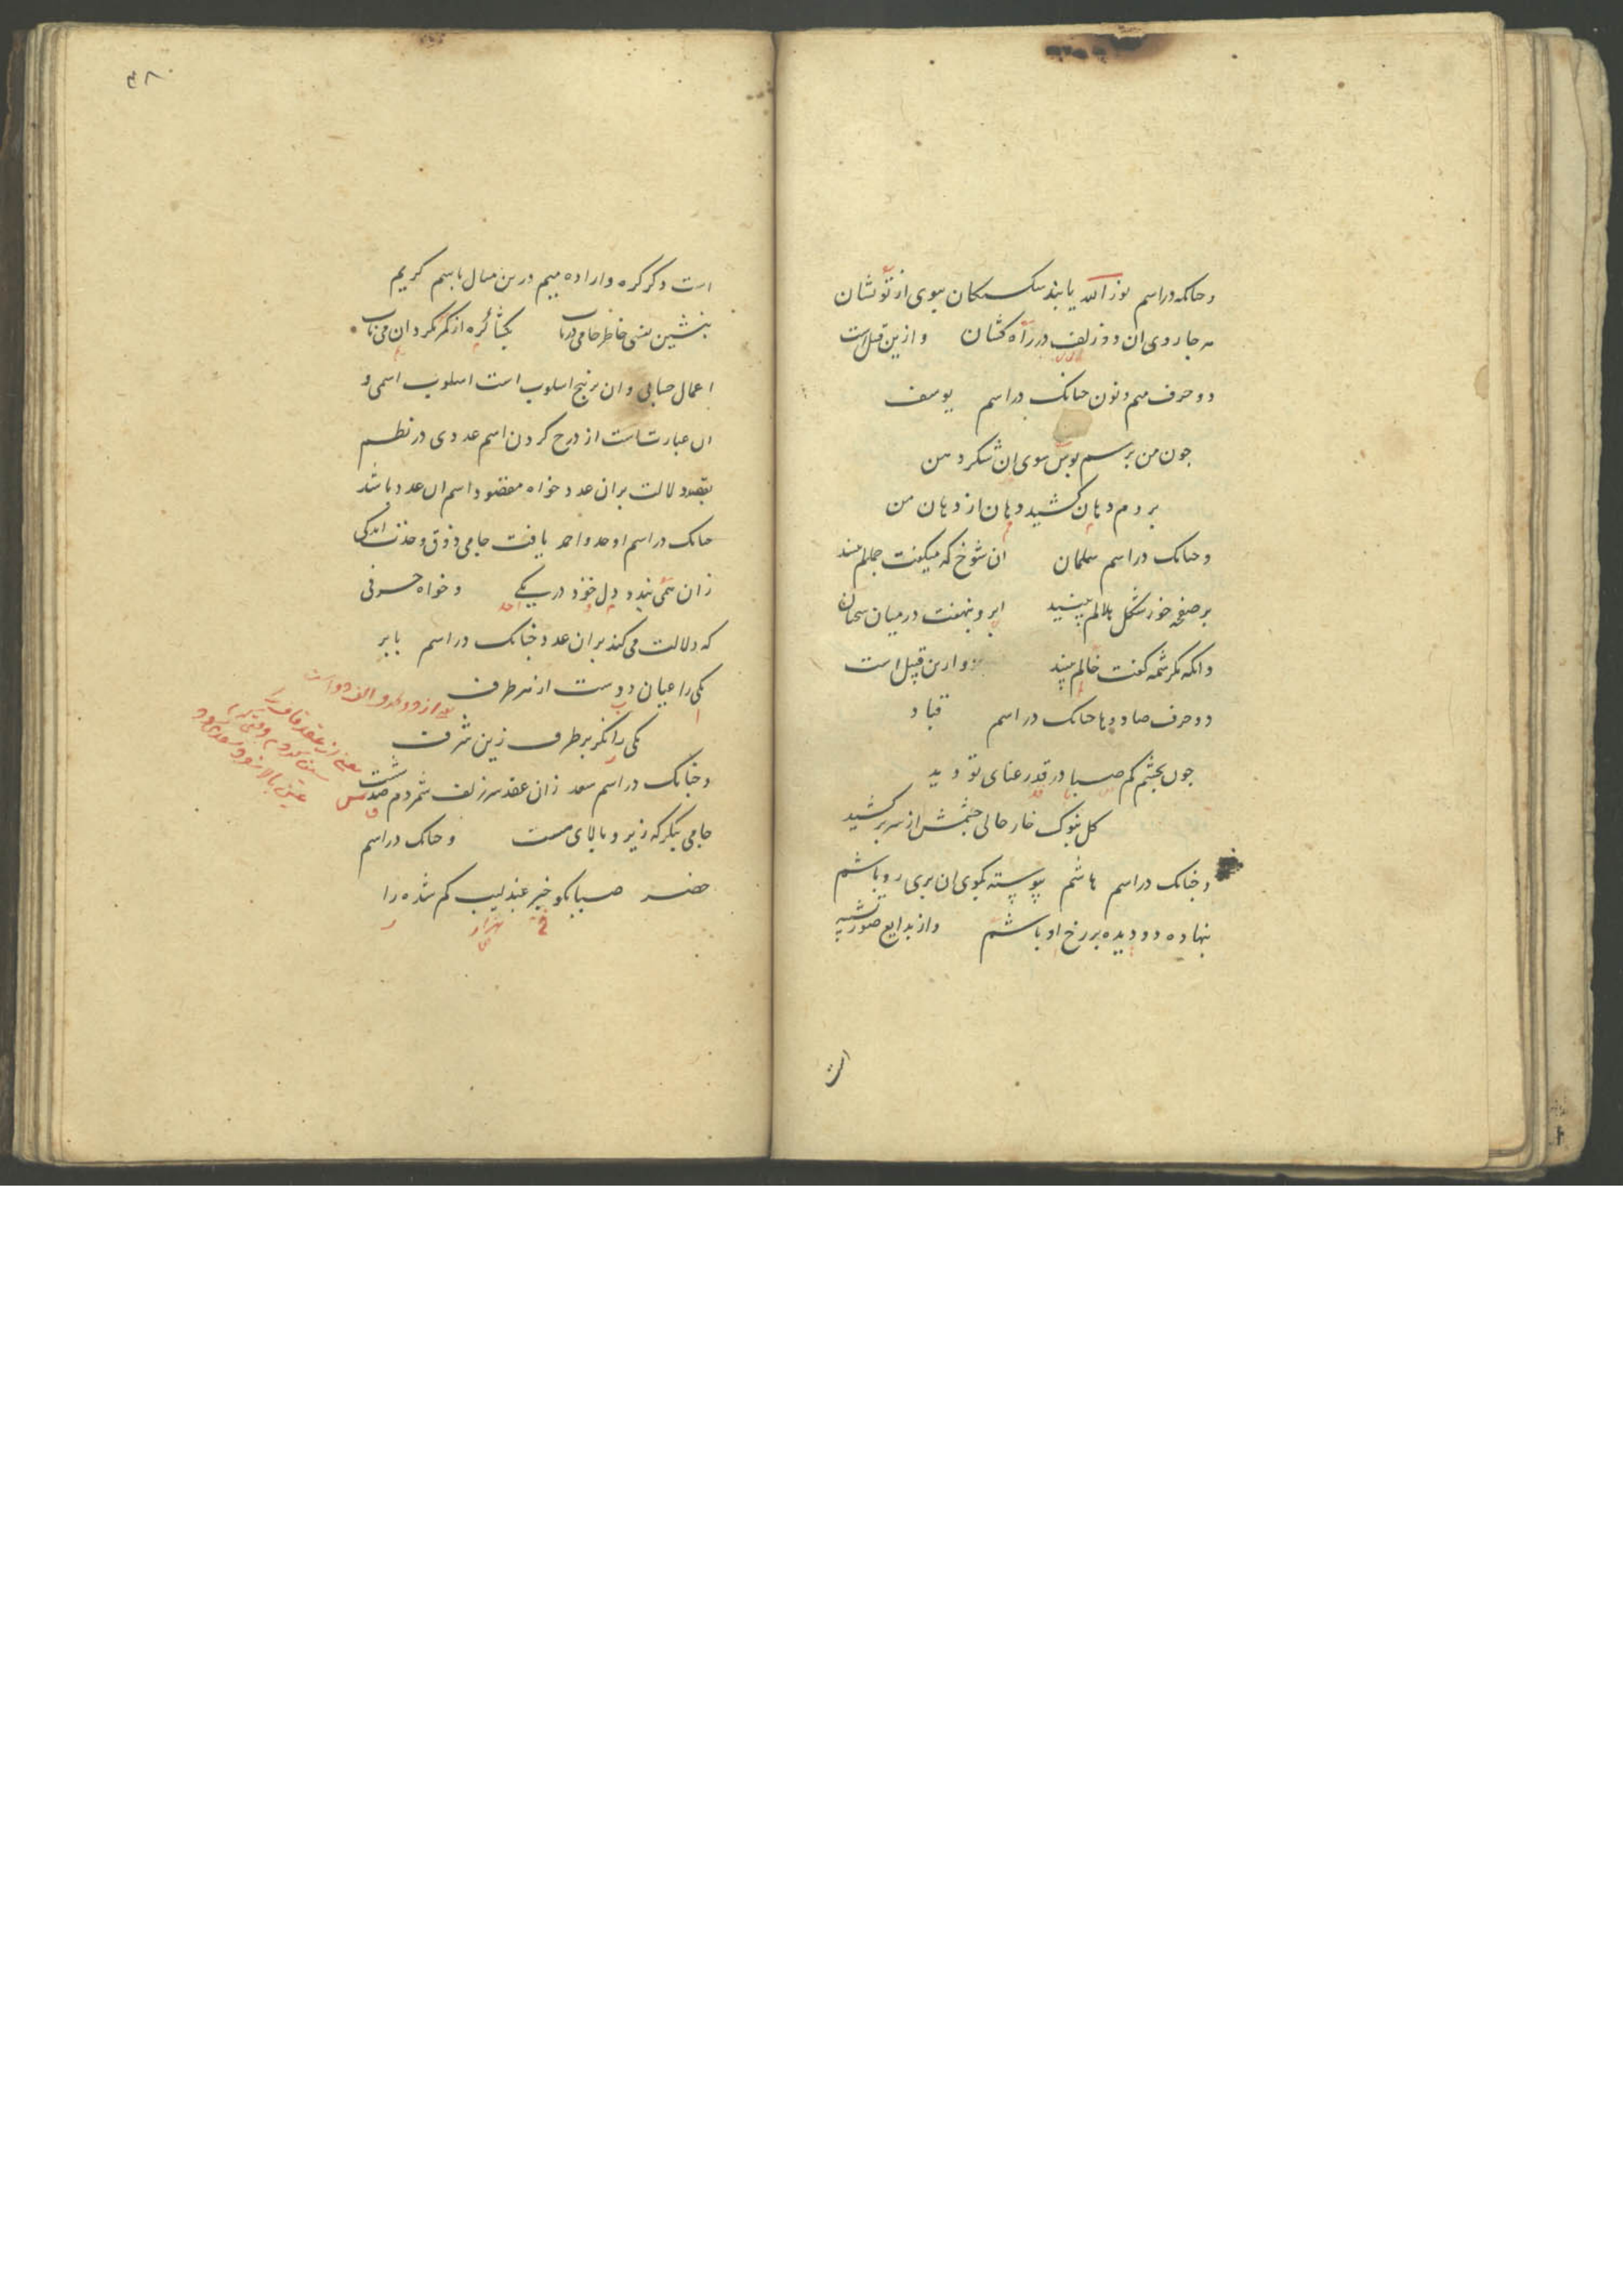 و چنانکه در اسم نور الله یابند شکستگان بسوی از تو نشان
هر جا روی ان دو زلف در راه کشان و ازین قبیل است
دو حرف میم و نون چنانک در اسم یوسف
چون من برسم بوس سوی ان شکر دهن
بردم دهان کشید دهان از دهان من
و چنانک در اسم سلمان ان شوخ که میکفت جمالم بینید
بر صفحه خور شکل هلالم بینید ابرو بنهفت در میان سخنان
وانکه بکرشمه کفت خالم بینید و ازین قبیل است
دو حرف صاد و ها چنانک در اسم قباد
چون بچشم کم صبا در قد رعنای تو دید
کل بنوک خار حالی چشمش از سر بر کشید
و چنانک در اسم هاشم پیوسته بکوی ان پری رو باشم
بنهاده دو دیده بر رخ او باشم و از بدایع صور تشبیه
۳۸
است ذکر کره و اراده میم درین مثال باسم کریم
بنشین نفسی خاطر جامی دریاب بکشا کره از کمر مکردان می ناب
اعمال حسابی و ان بر پنج اسلوب است اسلوب اسمی و
ان عبارتست از درج کردن اسم عددی در نظم
بقصد دلالت بران عدد خواه مقصود اسم ان عدد باشد
چنانک در اسم اوحد و احمد یافت جامی ذوق وحدت اندکی
زان همی بندد دل خود در یکی و خواه حرفی
احد
که دلالت می کند بران عدد چنانک در اسم بابر
یکی را عیان دوست از هر طرف
یکی را نکر بر طرف زین شرف
و چنانک در اسم سعد زان عقد سر زلف شمردم صد شست
جامی بنکر که زیر و بالای مست و چنانک در اسم
خضر صبا بکو خبر عندلیب کم شده را
هزار